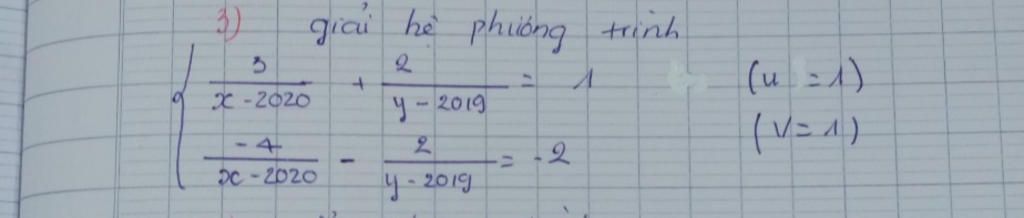 3) giải hệ phương trình
3/(x - 2020) + 2/(y - 2019) = 1 (u = 1)
(V = 1)
-4/(x - 2020) - 2/(y - 2019) = -2